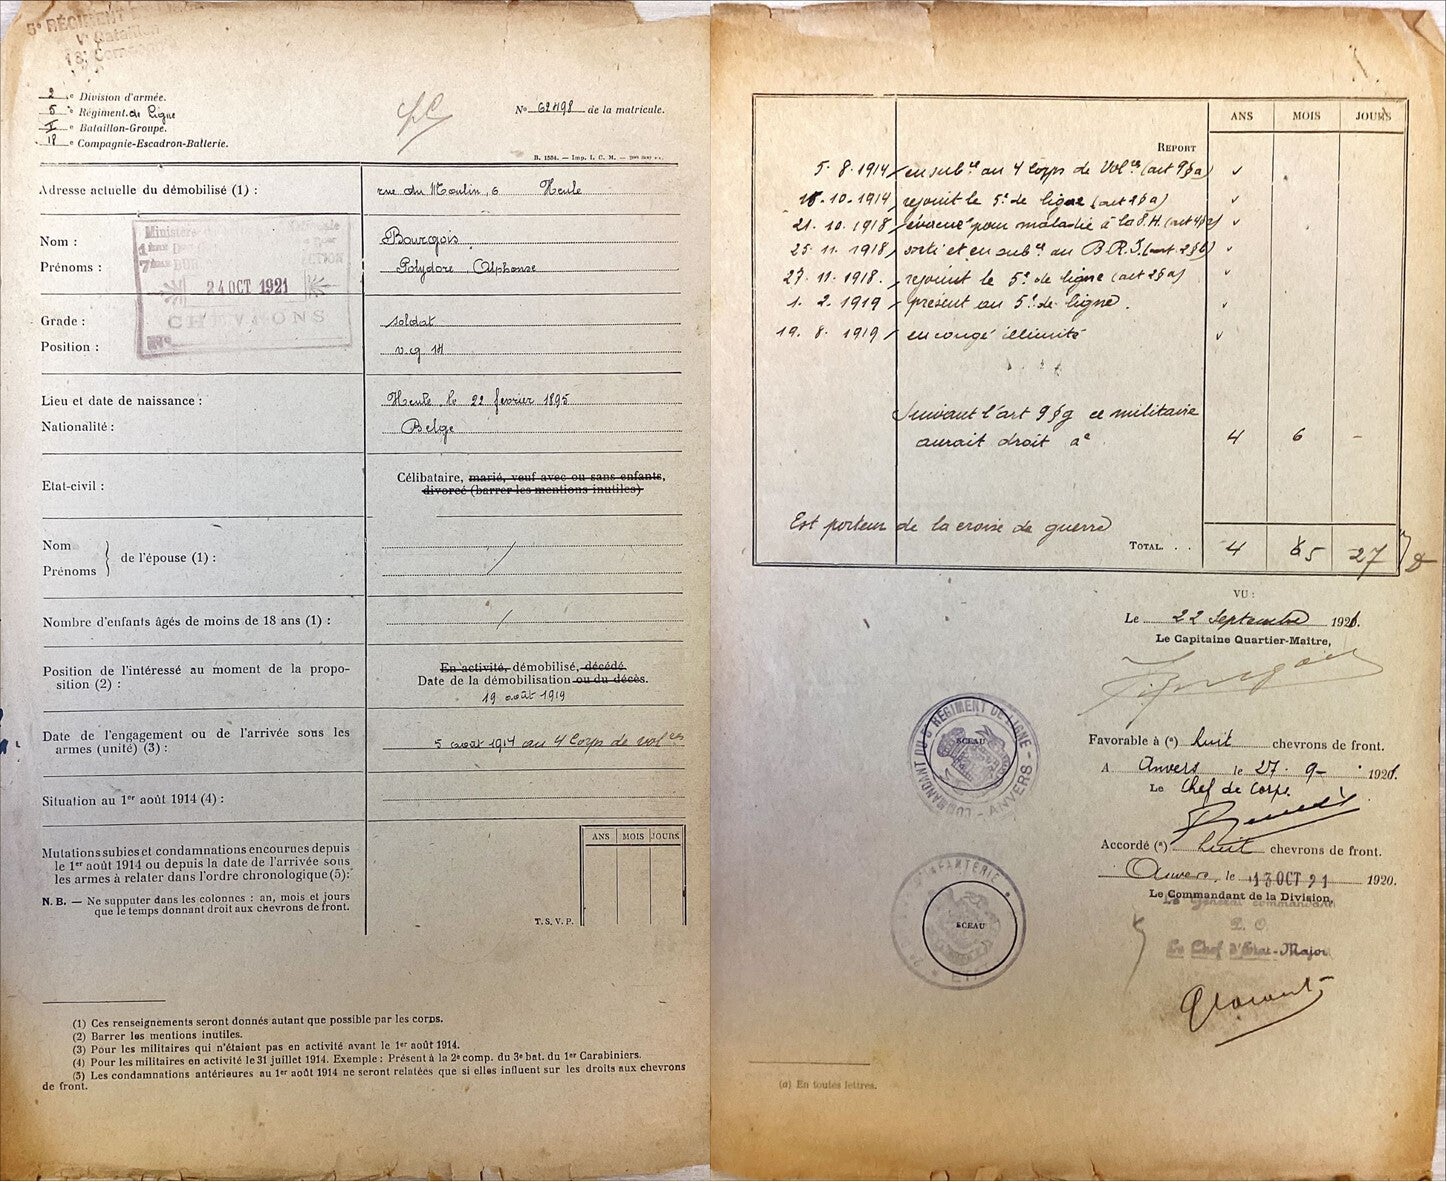 5e RÉGIMENT
V. Bataillon
18e Compagnie
2e Division d'armée.
5e Régiment. de Ligne
I e Bataillon-Groupe.
18e Compagnie-Escadron-Batterie.
No 62498 de la matricule.
B. 1534. — Imp. I. C. M. —
Adresse actuelle du démobilisé (1) : rue du Moulin, 6 Heule
Nom : Bourgois
Prénoms : Polydore, Alphonse
Ministère
24 OCT 1921
CHEVRONS
Grade : soldat
Position : v. g. 14
Lieu et date de naissance : Heule, le 22 février 1895
Nationalité : Belge
Etat-civil : Célibataire, marié, veuf avec ou sans enfants,
divorcé (barrer les mentions inutiles)
Nom
Prénoms } de l'épouse (1) : /
Nombre d'enfants âgés de moins de 18 ans (1) : /
Position de l'intéressé au moment de la propo-
sition (2) :
En activité, démobilisé, décédé.
Date de la démobilisation ou du décès.
19 août 1919
Date de l'engagement ou de l'arrivée sous les
armes (unité) (3) :
5 août 1914 au 4 Corps de Volres
Situation au 1er août 1914 (4) :
Mutations subies et condamnations encourues depuis
le 1er août 1914 ou depuis la date de l'arrivée sous
les armes à relater dans l'ordre chronologique (5):
N. B. — Ne supputer dans les colonnes : an, mois et jours
que le temps donnant droit aux chevrons de front.
ANS MOIS JOURS
T. S. V. P.
(1) Ces renseignements seront donnés autant que possible par les corps.
(2) Barrer les mentions inutiles.
(3) Pour les militaires qui n'étaient pas en activité avant le 1er août 1914.
(4) Pour les militaires en activité le 31 juillet 1914. Exemple : Présent à la 2e comp. du 3e bat. du 1er Carabiniers.
(5) Les condamnations antérieures au 1er août 1914 ne seront relatées que si elles influent sur les droits aux chevrons
de front.
ANS MOIS JOURS
REPORT
5. 8. 1914 / en subce au 4 Corps de Volres (art 9 § a)
10. 1914 / rejoint le 5e de ligne (art 2 § a)
21. 10. 1918 / évacué pour maladie à la S.H. (art 4 § 2)
25. 11. 1918 / sorti et en subce au B.R.I. (art 2 § b)
27. 11. 1918. / rejoint le 5e de ligne (art 2 § a)
1. 2. 1919 / présent au 5e de ligne.
19. 8. 1919 / en congé illimité
Suivant l'art 9 § g ce militaire
aurait droit à 4 6 -
Est porteur de la croix de guerre
TOTAL. . . 4 5 27
VU :
Le 22 Septembre 1921.
Le Capitaine Quartier-Maître,
COMMANDANT DU 5e RÉGIMENT DE LIGNE - ANVERS -
SCEAU
Favorable à (a) huit chevrons de front.
A Anvers le 27. 9 - 1921.
Le Chef de Corps
Accordé (a) huit chevrons de front.
Anvers, le 13 OCT 21 1920.
Le Commandant de la Division,
Le Général commandant
P. O.
Le Chef d'Etat-Major
INFANTERIE
SCEAU
(a) En toutes lettres.